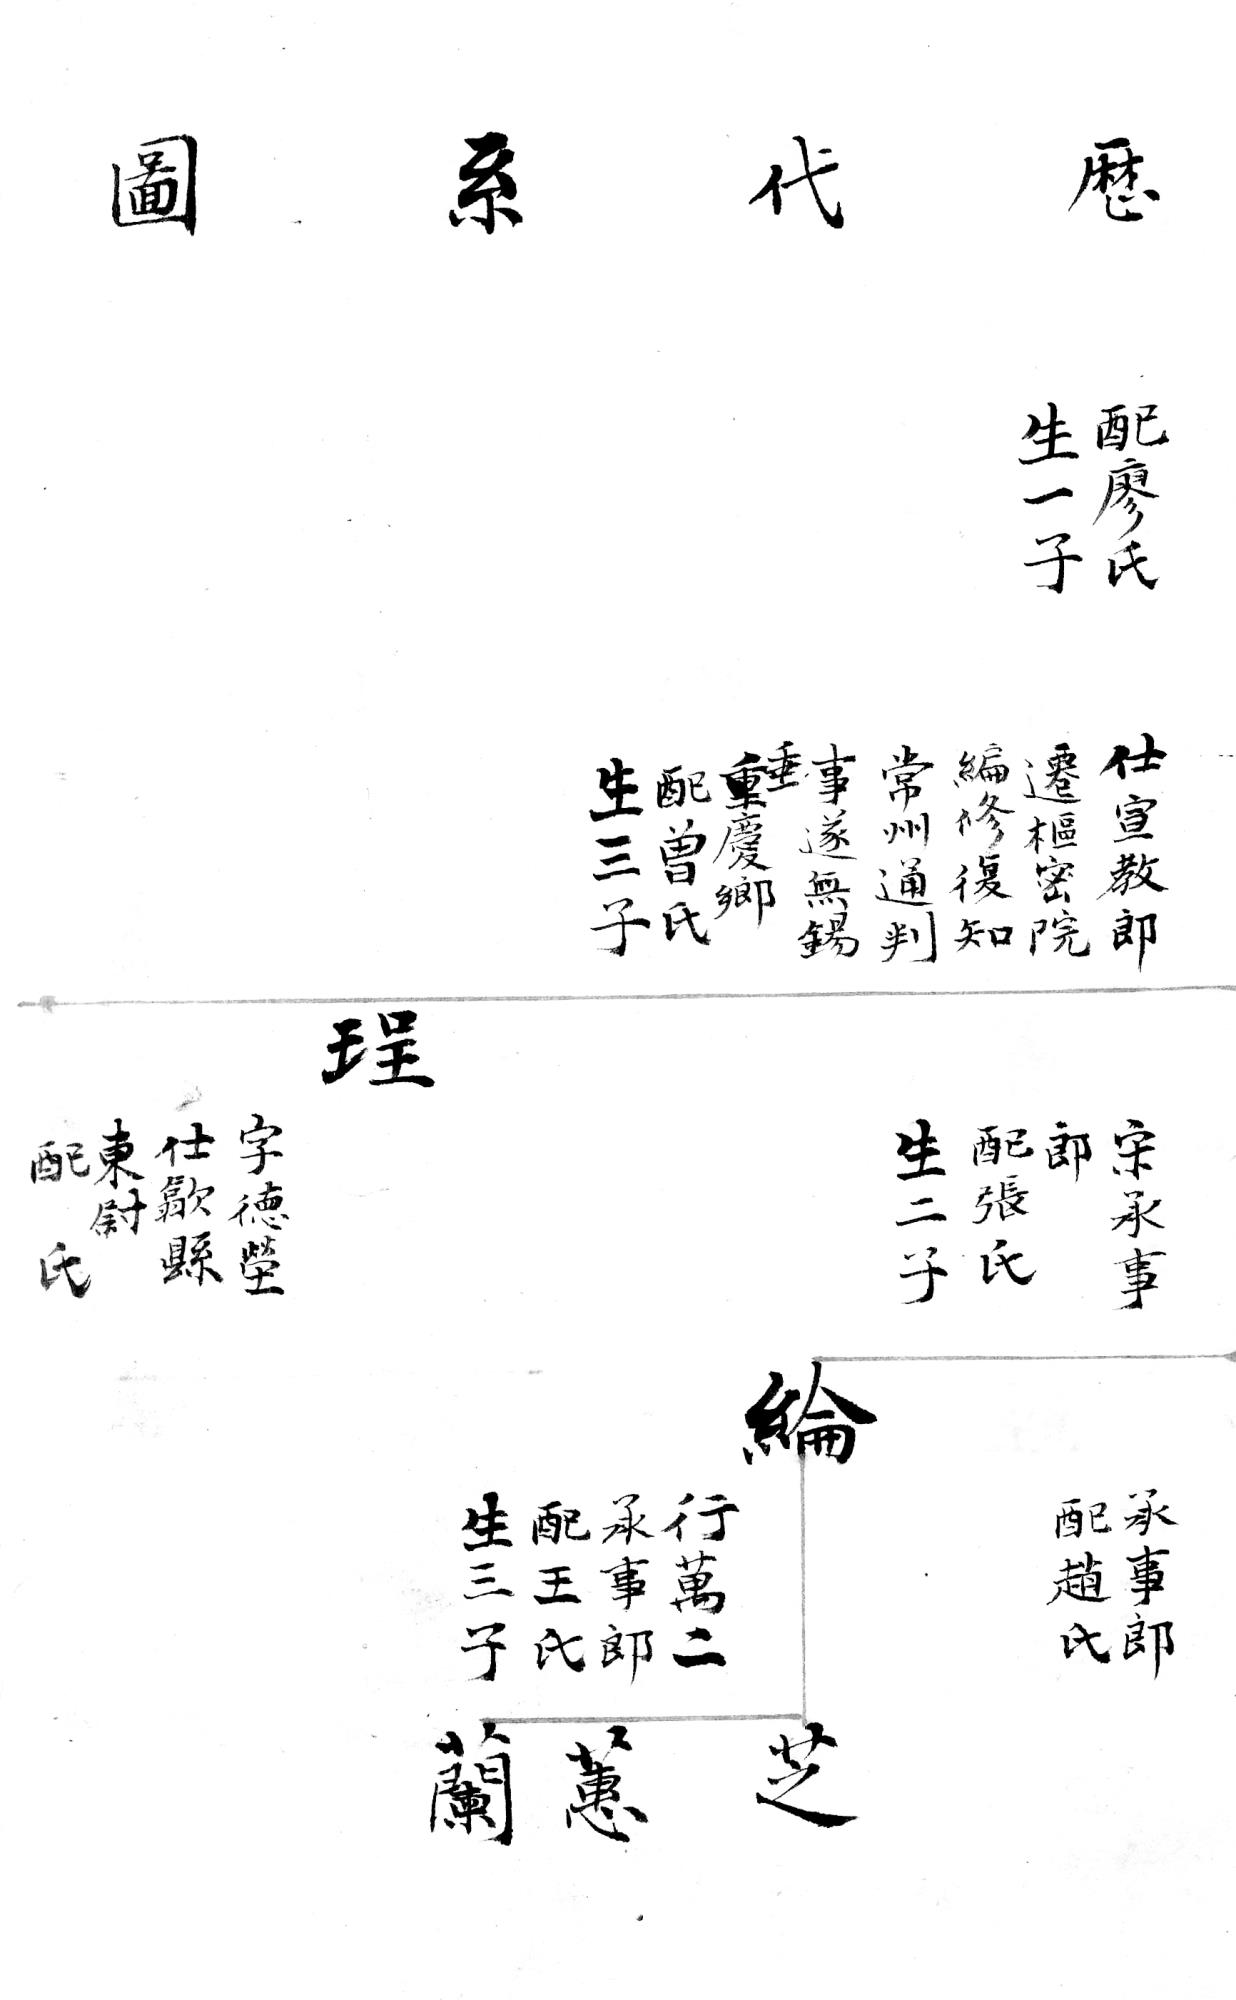 歷代系圖
配廖氏
生一子
仕宣教郎
遷樞密院
編修復知
常州通判
事遂無錫
垂
重慶鄉
配曾氏
生三子
珵
宋承事
郎
配張氏
生二子
字德瑩
仕歙縣
東尉
配 氏
綸
承事郎
配趙氏
行萬二
承事郎
配王氏
生三子
芝 蕙 蘭